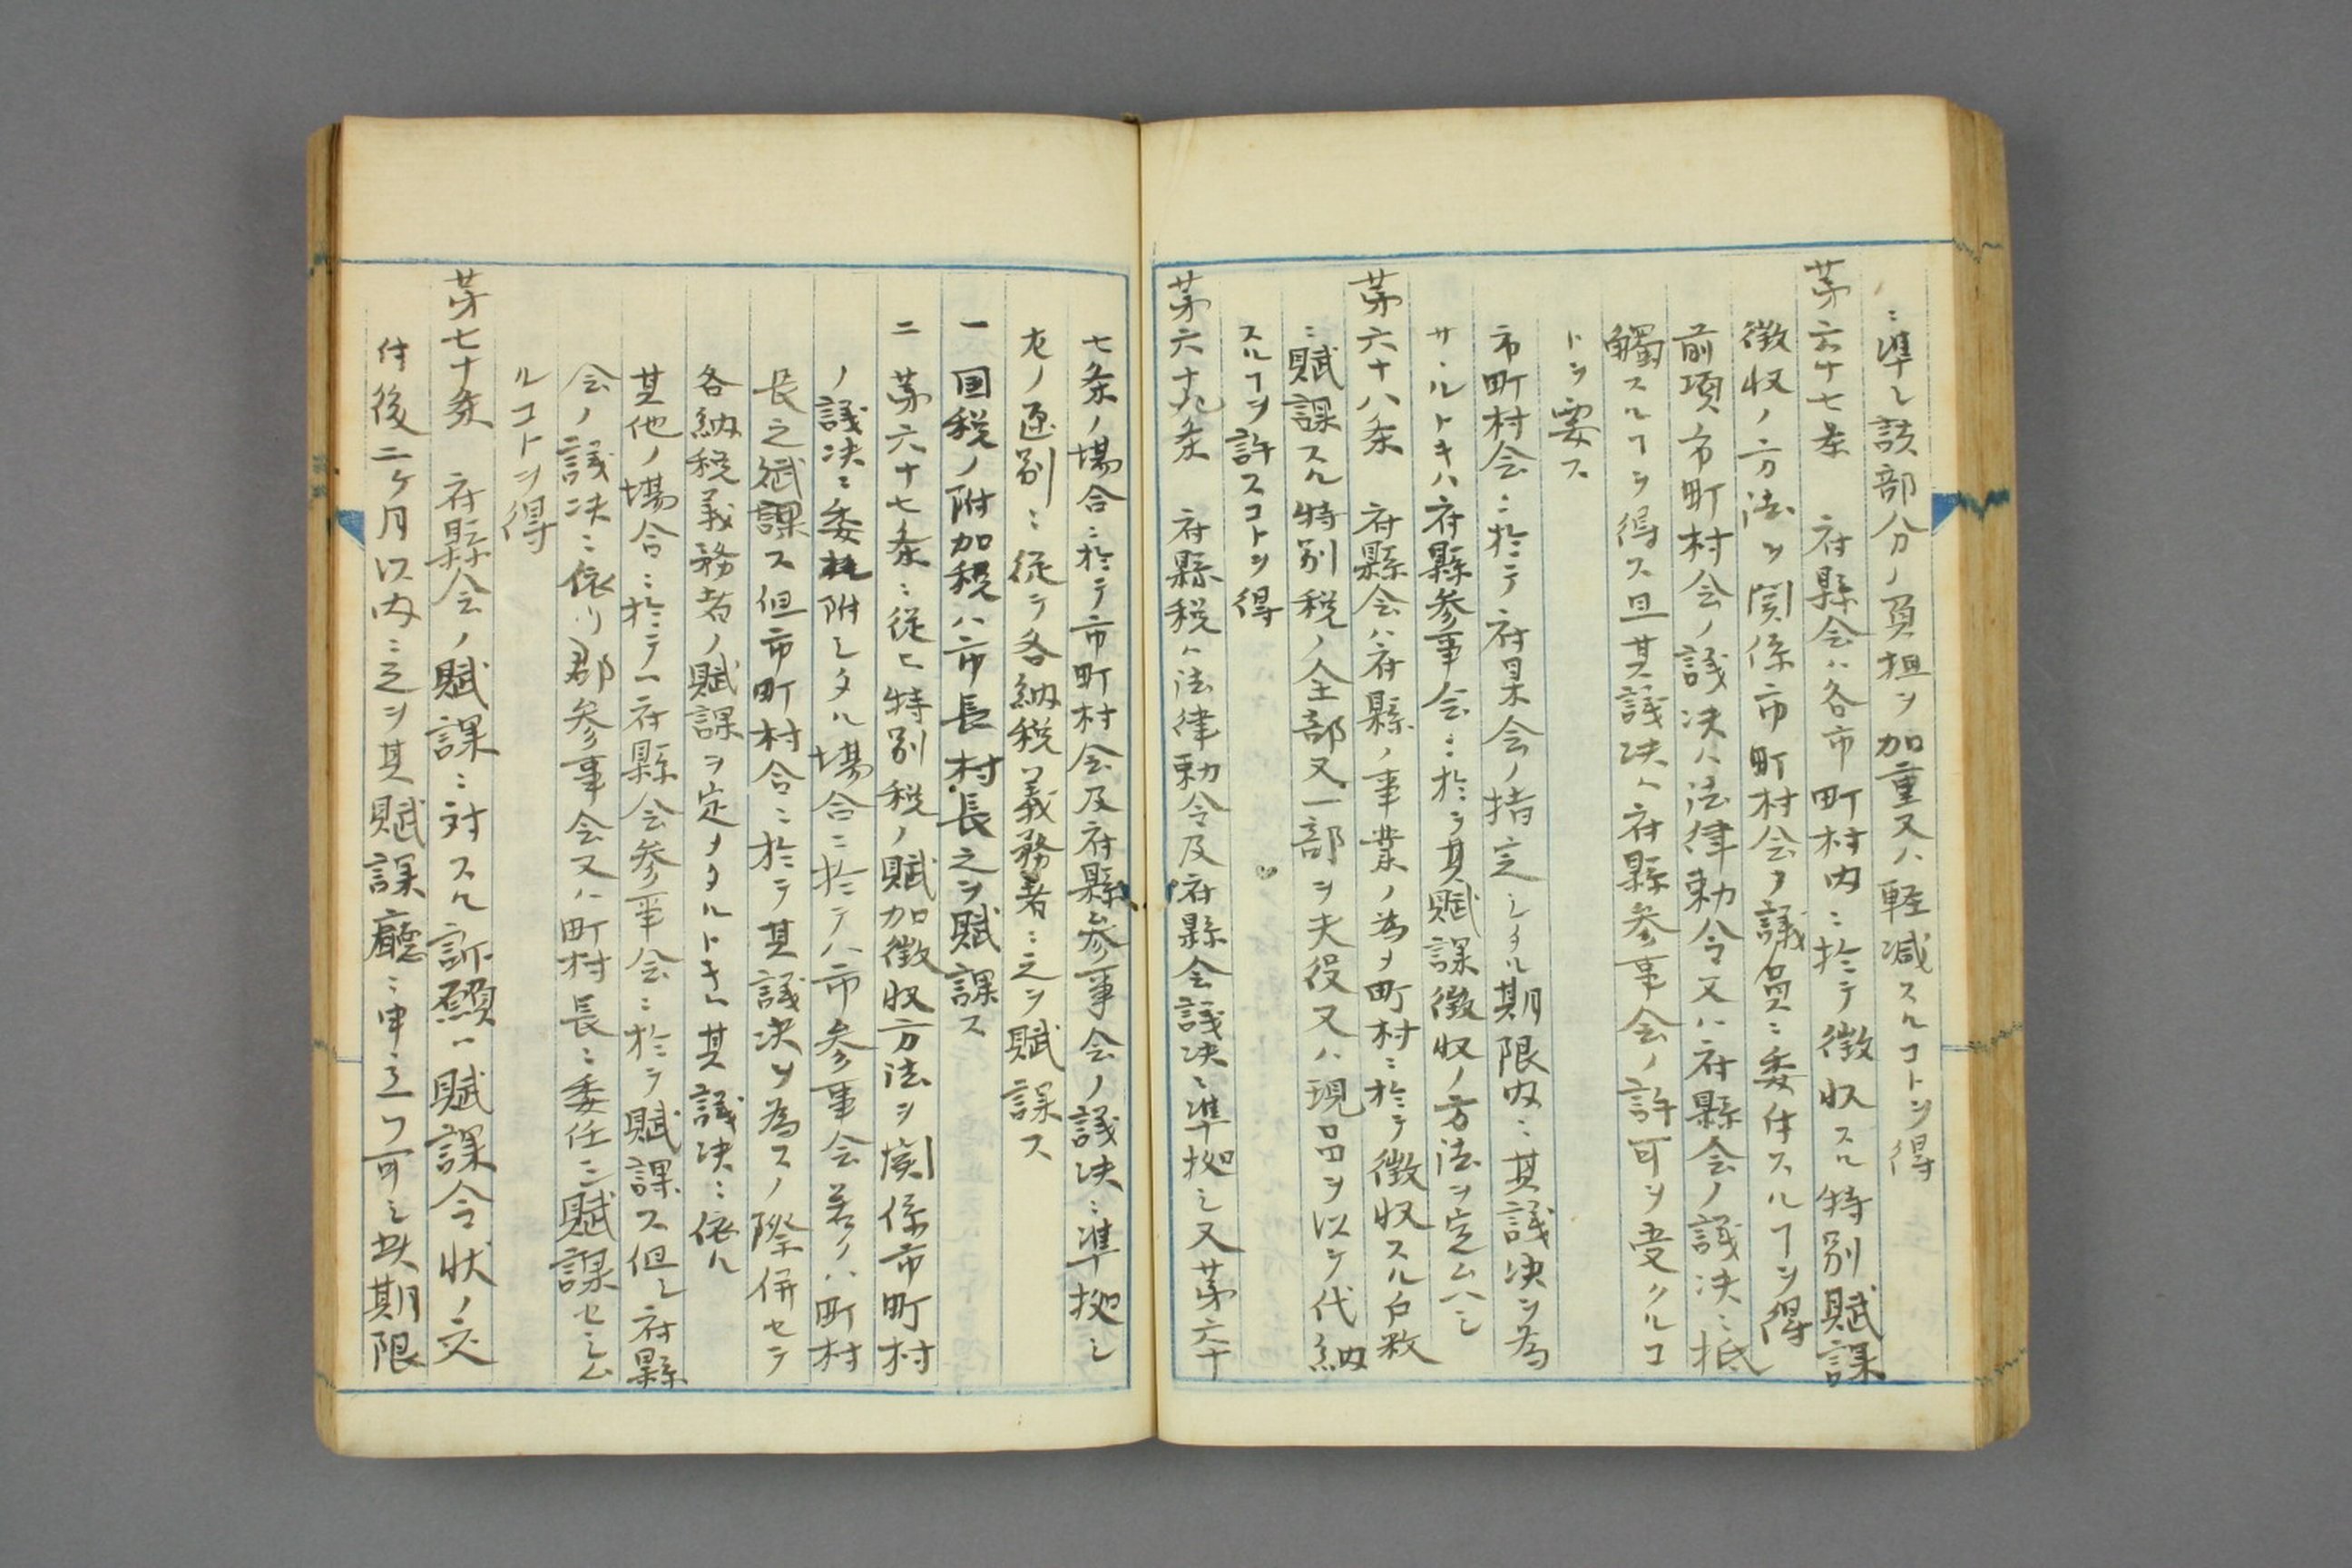 ニ準シ該部分ノ負担ヲ加重又ハ軽減スルコトヲ得
第六十七条 府縣会ハ各市町村内ニ於テ徴収スル特別賦課
徴収ノ方法ヲ関係市町村会ノ議員ニ委任スルヿヲ得
前項市町村会ノ議決ハ法律勅令又ハ府縣会ノ議決ニ抵
觸スルヿヲ得ス且其議决ハ府縣参事会ノ許可ヲ受クルコ
トヲ要ス
市町村会ニ於テ府県会ノ指定シタル期限内ニ其議决ヲ為
サヽルトキハ府縣参事会ニ於テ其賦課徴収ノ方法ヲ定ムヘシ
第六十八条 府縣会ハ府縣ノ事業ノ為メ町村ニ於テ徴収スル戸数
ニ賦課スル特別税ノ全部又一部ヲ夫役又ハ現品ヲ以テ代納
スルヿヲ許スコトヲ得
第六十九条 府縣税ハ法律勅令及府縣会議决ニ準拠シ又第六十
七条ノ場合ニ於テ市町村会及府縣参事会ノ議决ニ準拠シ
左ノ区別ニ従テ各納税義務者ニ之ヲ賦課ス
一 国税ノ附加税ハ市長村長之ヲ賦課ス
二 第六十七条ニ従ヒ特別税ノ賦加徴収方法ヲ関係市町村
ノ議决ニ委附シタル場合ニ於テハ市参事会若クハ町村
長之賦課ス但市町村会ニ於テ其議决ヲ為スノ際併セテ
各納税義務者ノ賦課ヲ定メタルトキハ其議决ニ依ル
其他ノ場合ニ於テハ府縣会参事会ニ於テ賦課ス但シ府縣
会ノ議决ニ依リ郡参事会又ハ町村長ニ委任シ賦課セシム
ルコトヲ得
第七十条 府縣会ノ賦課ニ対スル訴願ハ賦課令状ノ交
付後二ケ月以内ニ之ヲ其賦課廳ニ申立ツ可シ此期限